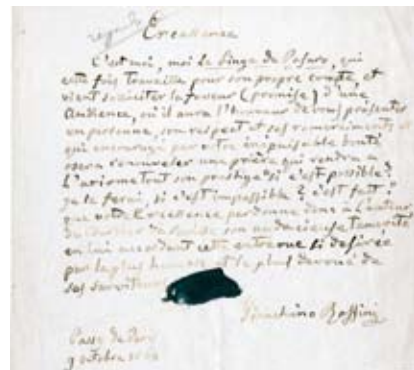 Excellence
C'est moi, moi le Singe de Pesaro, qui
cette fois travaille pour son propre compte, et
vient solliciter la faveur (promise) d'une
Audience, où il aura l'honneur de vous présenter
en personne, son respect et ses remerciments et
qui encouragé par votre inépuisable bonté
osera renouveler une prière qui rendra a
L'axiome tout son prestige si c'est possible?
ça se ferai, si c'est impossible? c'est fait!
que votre Excellence pardonne donc à L'auteur
du son audacieuse temerité
en lui accordant cette entrevue si desirée
par le plus humble et le plus devoué de
ses serviteurs
Gioachino Rossini
Passy de Paris
9 octobre